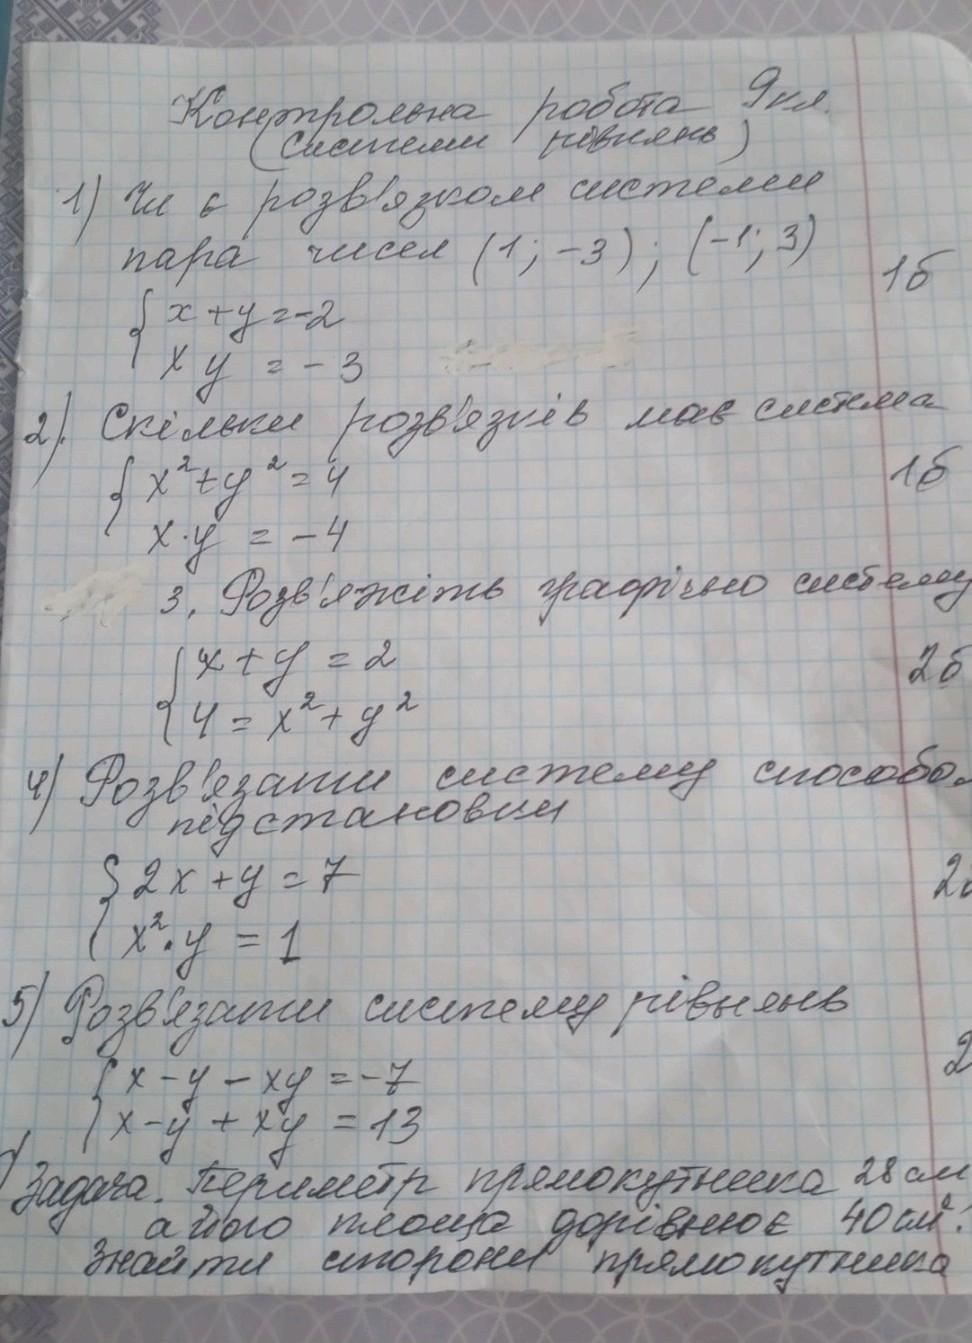 Контрольна робота 9кл.
(системи рівнянь)
1) Чи є розв'язком системи
пара чисел (1; -3); (-1; 3)
1б
{ x + y = -2
x y = - 3
2). Скільки розв'язків має система
{ x² + y² = 4
1б
x · y = - 4
3. Розв'яжіть графічно систему
{ x + y = 2
2б
4 = x² + y²
4) Розв'язати систему способо
підстановки
{ 2x + y = 7
2б
x² · y = 1
5) Розв'язати систему рівнянь
{ x - y - xy = -7
2
x - y + xy = 13
Задача. Периметр прямокутника 28 см
а його площа дорівнює 40 см².
Знайти сторони прямокутника